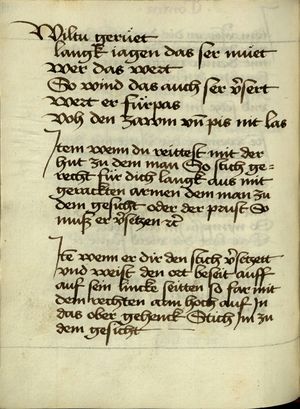 Wiltu geruet
langk jagen das ser muet
Wer das wert
So wind das auch ser v̄sert
Wert er fürpas
Voh den zawm vn̄ pis nit las
Item wenn du reittest mit der
hut zu dem man So stich ge-
recht für dich langk aus mit
gerackten armen dem man zu
dem gesicht oder der prust So
muß er v̄setzen ⁊c
Itē wenn er dir den stich v̄setzett
vnd weist den ort beseit auff
auf sein lincke seitten so far mit
dem rechten arm hoch auf In
das ober gehenck Stich im zu
dem gesicht